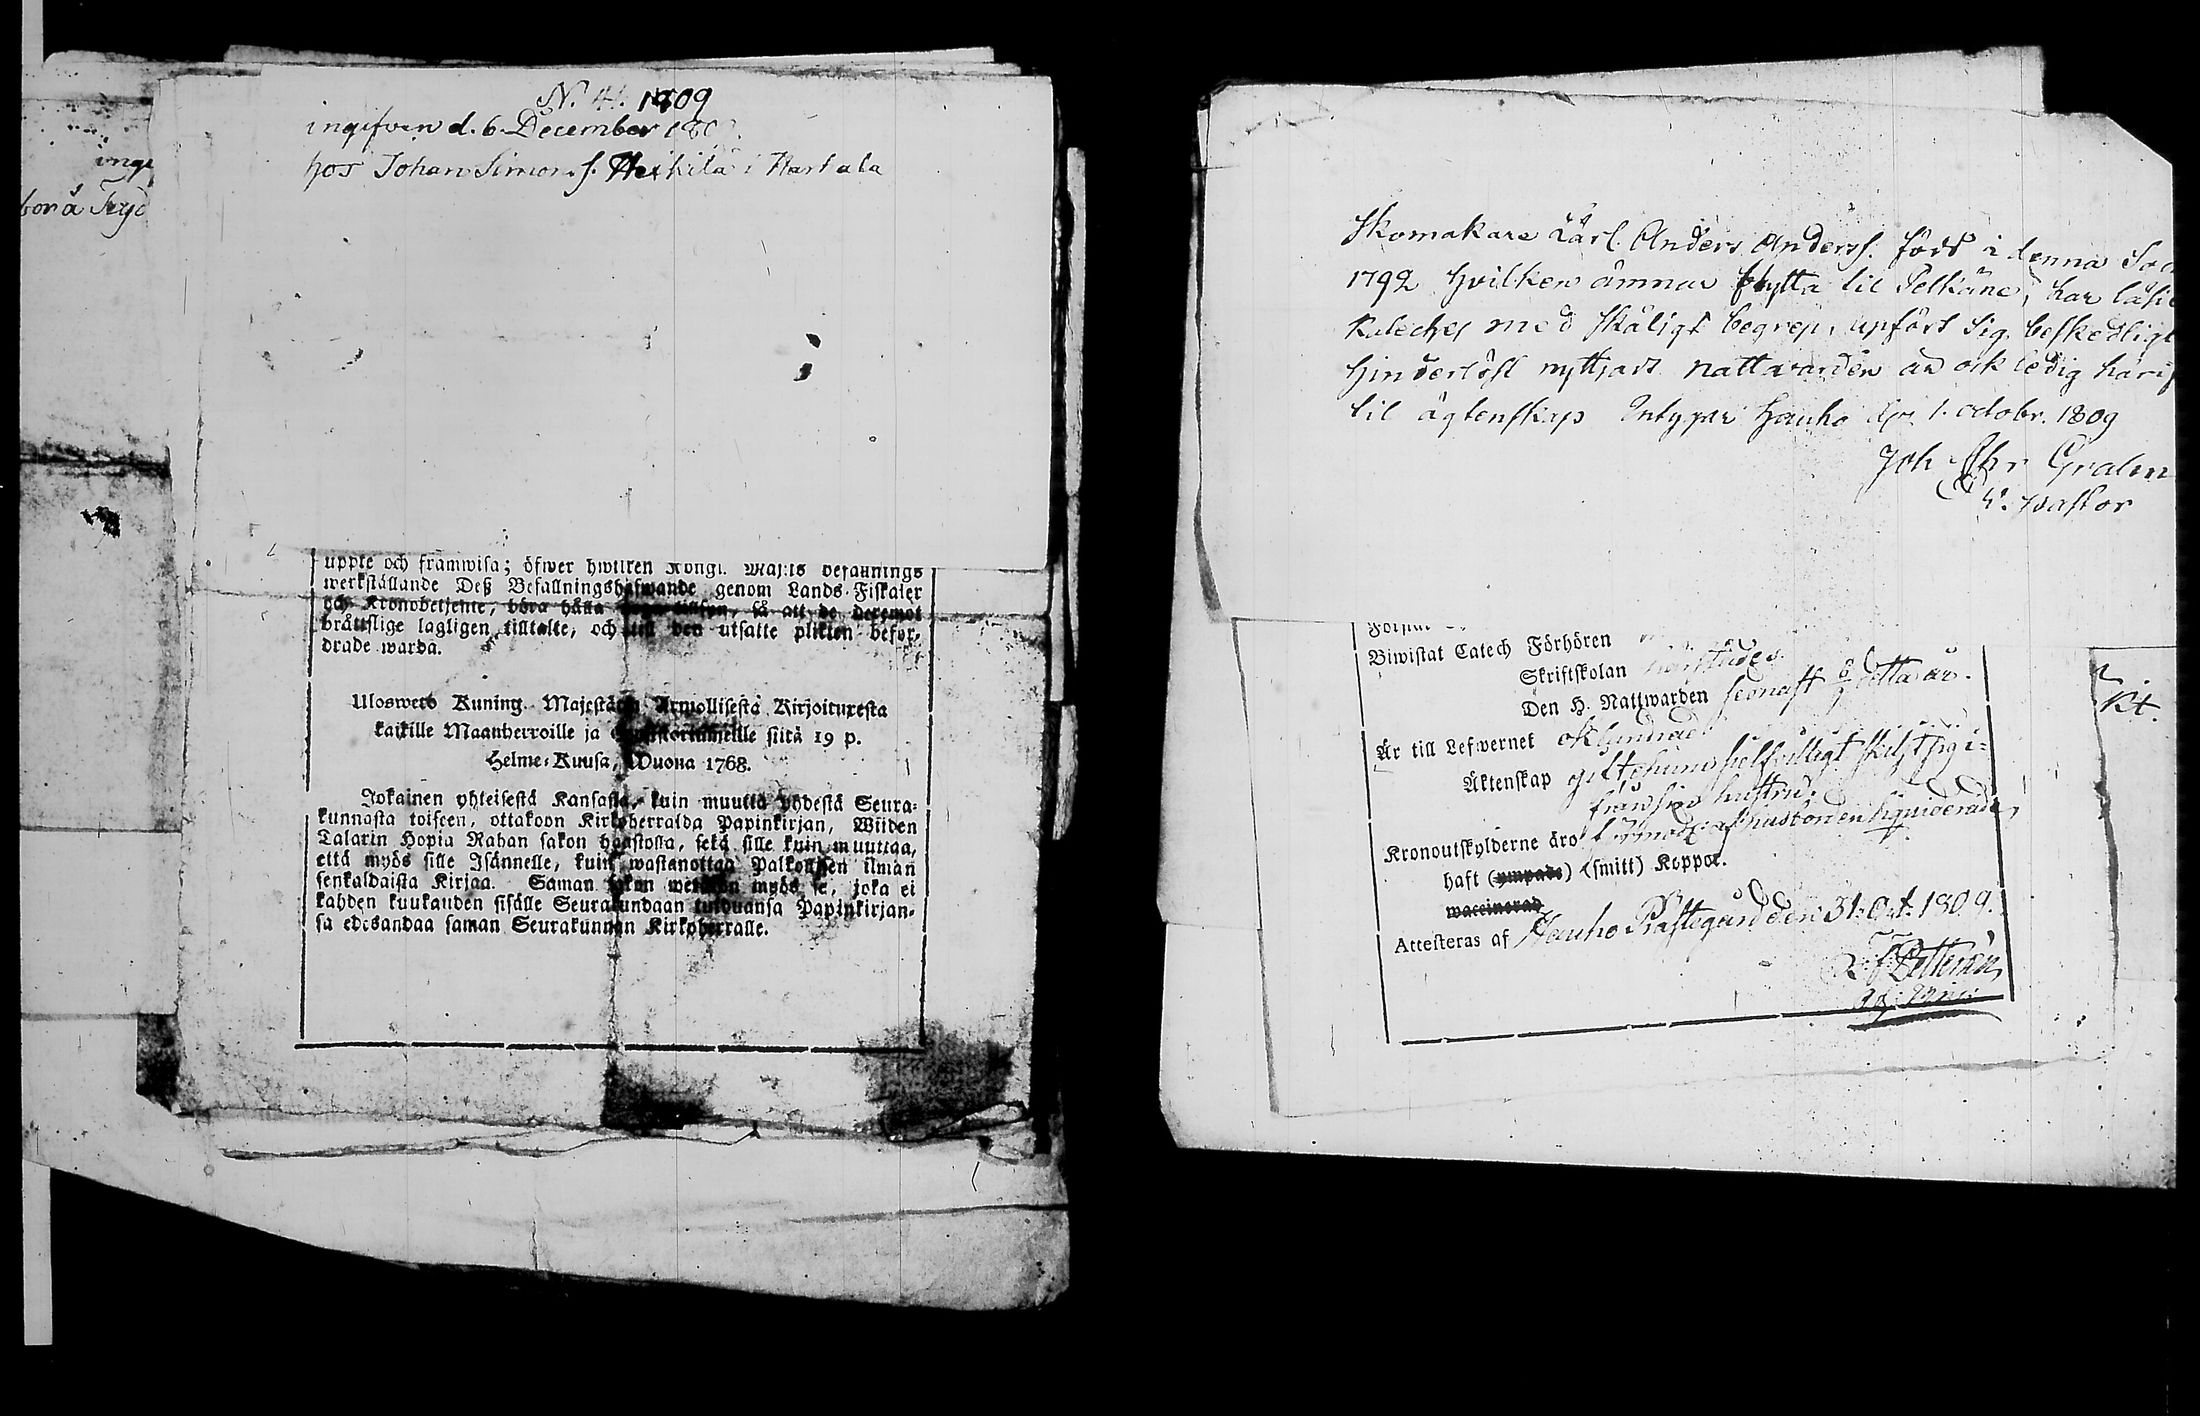 N. 41. 1809
ingifven d. 6 December 180
hos Johan Simons s. Heikilä i Hartala
inge
bor å
uppte och framwisa; öfwer hwilken Kongl. Maj:ts befallnings
werkställande Deß Befallningshafwande genom Lands-Fiskaler
och Kronobetjente, böra hålla noga tillsyn, så att de deremot
bråttslige lagligen tilltalte, och till den utsatte plikten befor-
drade warda.
Uloswets Kuning. Majestätin Armollisesta Kirjoituxesta
kaikille Maanherroille ja Consistoriumeille siitä 19 p.
Helme-Kuusa, Wuona 1768.
Jokainen yhteisestä Kansasta, kuin muutta yhdestä Seura-
kunnasta toiseen, ottakoon Kirkoherralda Papinkirjan, Wiiden
Talarin Hopia Rahan sakon haastosta, sekä sille kuin muuttaa,
että myös sille Isännelle, kuin wastanottaa Palkollisen ilman
senkaldaista Kirjaa. Saman sakon wetäkön myös se, joka ei
kahden kuukauden sisälle Seurakundaan tulduansa Papinkirjan-
sa edesandaa saman Seurakunnan Kirkoherralle.
Skomakare Lärl. Anders Anderss. född i denna Soc
1792 hvilken ämnar flytta til Pelkäne, har läsit
Kateches med skäligt begrep, upfört sig beskedligt
hinderlöst nyttjart nattvarden än ock ledig häri
til ägtenskap Intygar Hauho d. 1. octobr. 1809
Joh Chr Gralen
V. pastor
Biwistat Catech Förhören
Skriftskolan
Den H. Nattwarden senast 8/7 detta år.
Är till Lefwernet oklandrad
Äktenskap gift, hans sielfvilligt skiljt sig i-
från sin hustru.
Kronoutskylderne äro förmodl. af husbonden liquiderade,
haft (ympade) (smitt) Koppor.
waccinerad
Attesteras af Hauho Prästegård den 31. Oct. 1809.
kt.